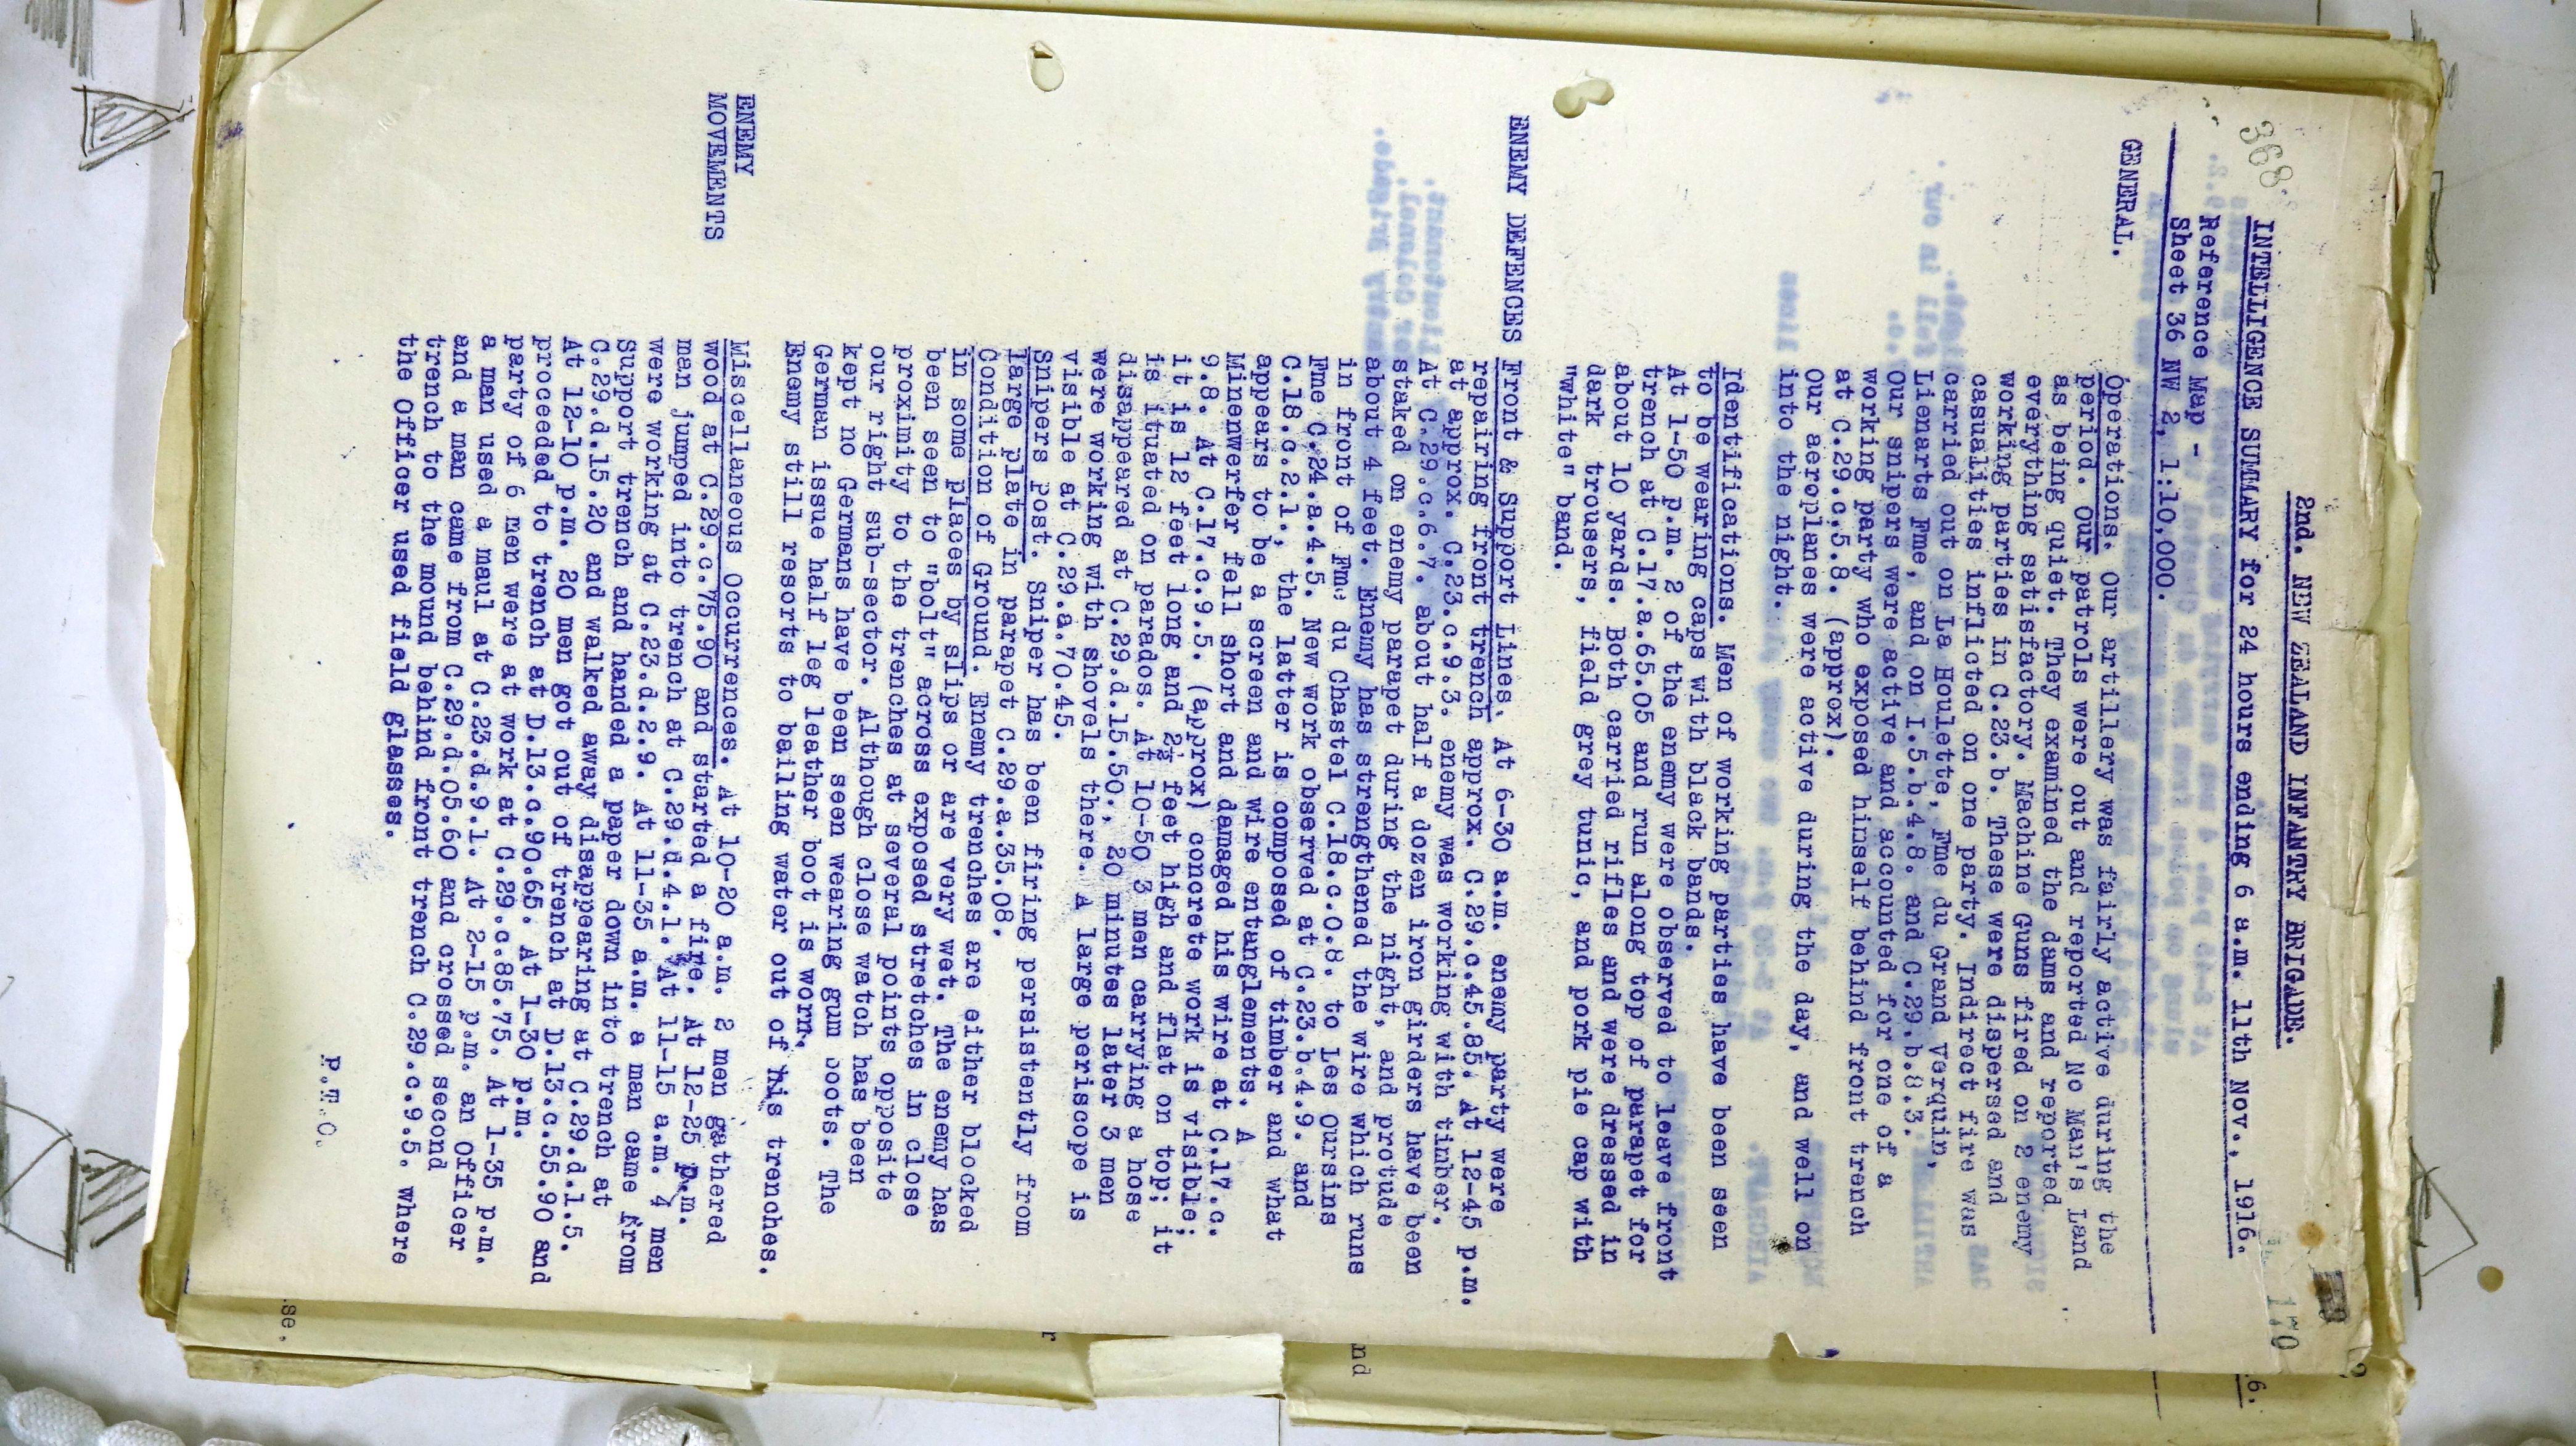 368.
170
2nd. NEW ZEALAND INFANTRY BRIGADE.
INTELLIGENCE SUMMARY for 24 hours ending 6 a.m. 11th Nov., 1916.
Reference Map -
Sheet 36 NW 2, 1:10,000.
GENERAL.
Operations. Our artillery was fairly active during the
period. Our patrols were out and reported No Man's Land
as being quiet. They examined the dams and reported
everything satisfactory. Machine Guns fired on 2 enemy
working parties in C.23.b. These were dispersed and
casualities inflicted on one party. Indirect fire was
carried out on La Houlette, Fme du Grand Verquin,
Lienarts Fme, and on I.5.b.4.8. and C.29.b.8.3.
Our snipers were active and accounted for one of a
working party who exposed himself behind front trench
at C.29.c.5.8. (approx).
Our aeroplanes were active during the day, and well on
into the night.
Identifications. Men of working parties have been seen
to be wearing caps with black bands.
At 1-50 p.m. 2 of the enemy were observed to leave front
trench at C.17.a.65.05 and run along top of parapet for
about 10 yards. Both carried rifles and were dressed in
dark trousers, field grey tunic, and pork pie cap with
"white" band.
ENEMY DEFENCES Front & Support Lines. At 6-30 a.m. enemy party were
repairing front trench approx. C.29.c.45.85. At 12-45 p.m.
at approx. C.23.c.9.3. enemy was working with timber.
At C.29.c.6.7. about half a dozen iron girders have been
staked on enemy parapet during the night, and protude
about 4 feet. Enemy has strengthened the wire which runs
in front of Fme du Chastel C.18.c.0.8. to Les Oursins
Fme C.24.a.4.5. New work observed at C.23.b.4.9. and
C.18.c.2.1., the latter is composed of timber and what
appears to be a screen and wire entanglements. A
Minenwerfer fell short and damaged his wire at C.17.c.
9.8. At C.17.c.9.5. (approx) concrete work is visible;
it is 12 feet long and 2½ feet high and flat on top; it
is situated on parados. At 10-50 3 men carrying a hose
disappeared at C.29.d.15.50., 20 minutes later 3 men
were working with shovels there. A large periscope is
visible at C.29.a.70.45.
Snipers post. Sniper has been firing persistently from
large plate in parapet C.29.a.35.08.
Condition of Ground. Enemy trenches are either blocked
in some places by slips or are very wet. The enemy has
been seen to "bolt" across exposed stretches in close
proximity to the trenches at several points opposite
our right sub-sector. Although close watch has been
kept no Germans have been seen wearing gum boots. The
German issue half leg leather boot is worn.
Enemy still resorts to bailing water out of his trenches.
ENEMY
MOVEMENTS
Miscellaneous Occurrences. At 10-20 a.m. 2 men gathered
wood at C.29.c.75.90 and started a fire. At 12-25 p.m.
man jumped into trench at C.29.d.4.1. At 11-15 a.m. 4 men
were working at C.23.d.2.9. At 11-35 a.m. a man came from
Support trench and handed a paper down into trench at
C.29.d.15.20 and walked away disappearing at C.29.d.1.5.
At 12-10 p.m. 20 men got out of trench at D.13.c.55.90 and
proceeded to trench at D.13.c.90.65. At 1-30 p.m.
party of 6 men were at work at C.29.c.85.75. At 1-35 p.m.
a man used a maul at C.23.d.9.1. At 2-15 p.m. an Officer
and a man came from C.29.d.05.60 and crossed second
trench to the mound behind front trench C.29.c.9.5. where
the Officer used field glasses.
P.T.O.